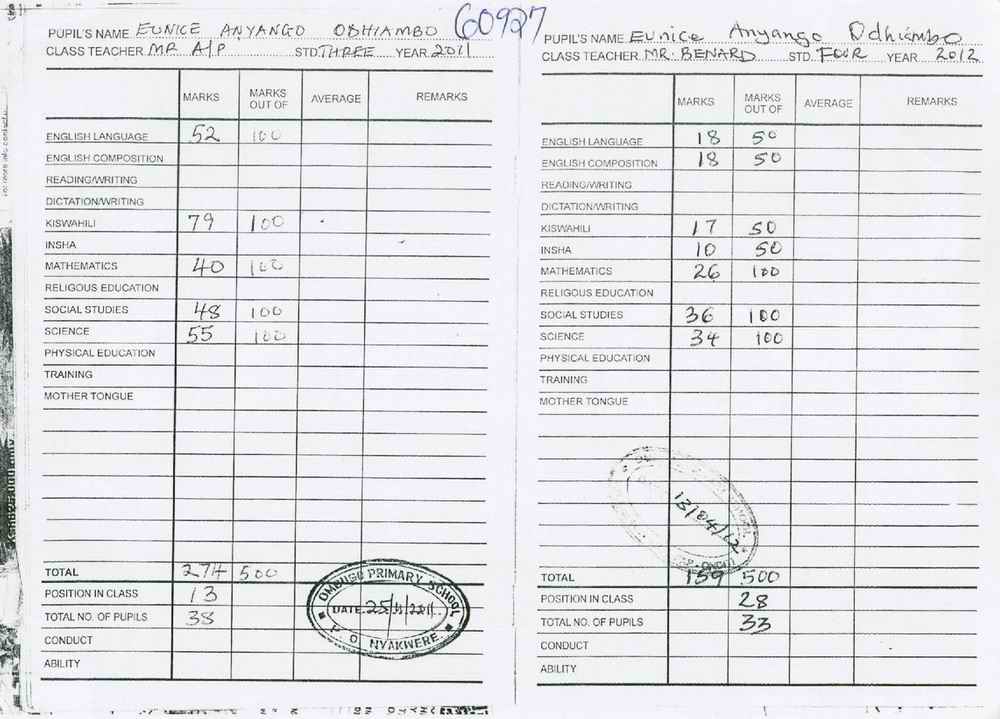 60927
PUPIL'S NAME EUNICE ANYANGO ODHIAMBO
CLASS TEACHER MR A/P STD. THREE YEAR 2011
MARKS MARKS OUT OF AVERAGE REMARKS
ENGLISH LANGUAGE 52 100
ENGLISH COMPOSITION
READING/WRITING
DICTATION/WRITING
KISWAHILI 79 100
INSHA
MATHEMATICS 40 100
RELIGOUS EDUCATION
SOCIAL STUDIES 48 100
SCIENCE 55 100
PHYSICAL EDUCATION
TRAINING
MOTHER TONGUE
TOTAL 274 500
POSITION IN CLASS 13
TOTAL NO. OF PUPILS 38
CONDUCT
ABILITY
OMBUGU PRIMARY SCHOOL
DATE 25/11/2011
P. O. NYAKWERE
PUPIL'S NAME Eunice Anyango Odhiambo
CLASS TEACHER MR. BENARD STD. FOUR YEAR 2012
MARKS MARKS OUT OF AVERAGE REMARKS
ENGLISH LANGUAGE 18 50
ENGLISH COMPOSITION 18 50
READING/WRITING
DICTATION/WRITING
KISWAHILI 17 50
INSHA 10 50
MATHEMATICS 26 100
RELIGOUS EDUCATION
SOCIAL STUDIES 36 100
SCIENCE 34 100
PHYSICAL EDUCATION
TRAINING
MOTHER TONGUE
13/04/12
TOTAL 159 500
POSITION IN CLASS 28
TOTAL NO. OF PUPILS 33
CONDUCT
ABILITY